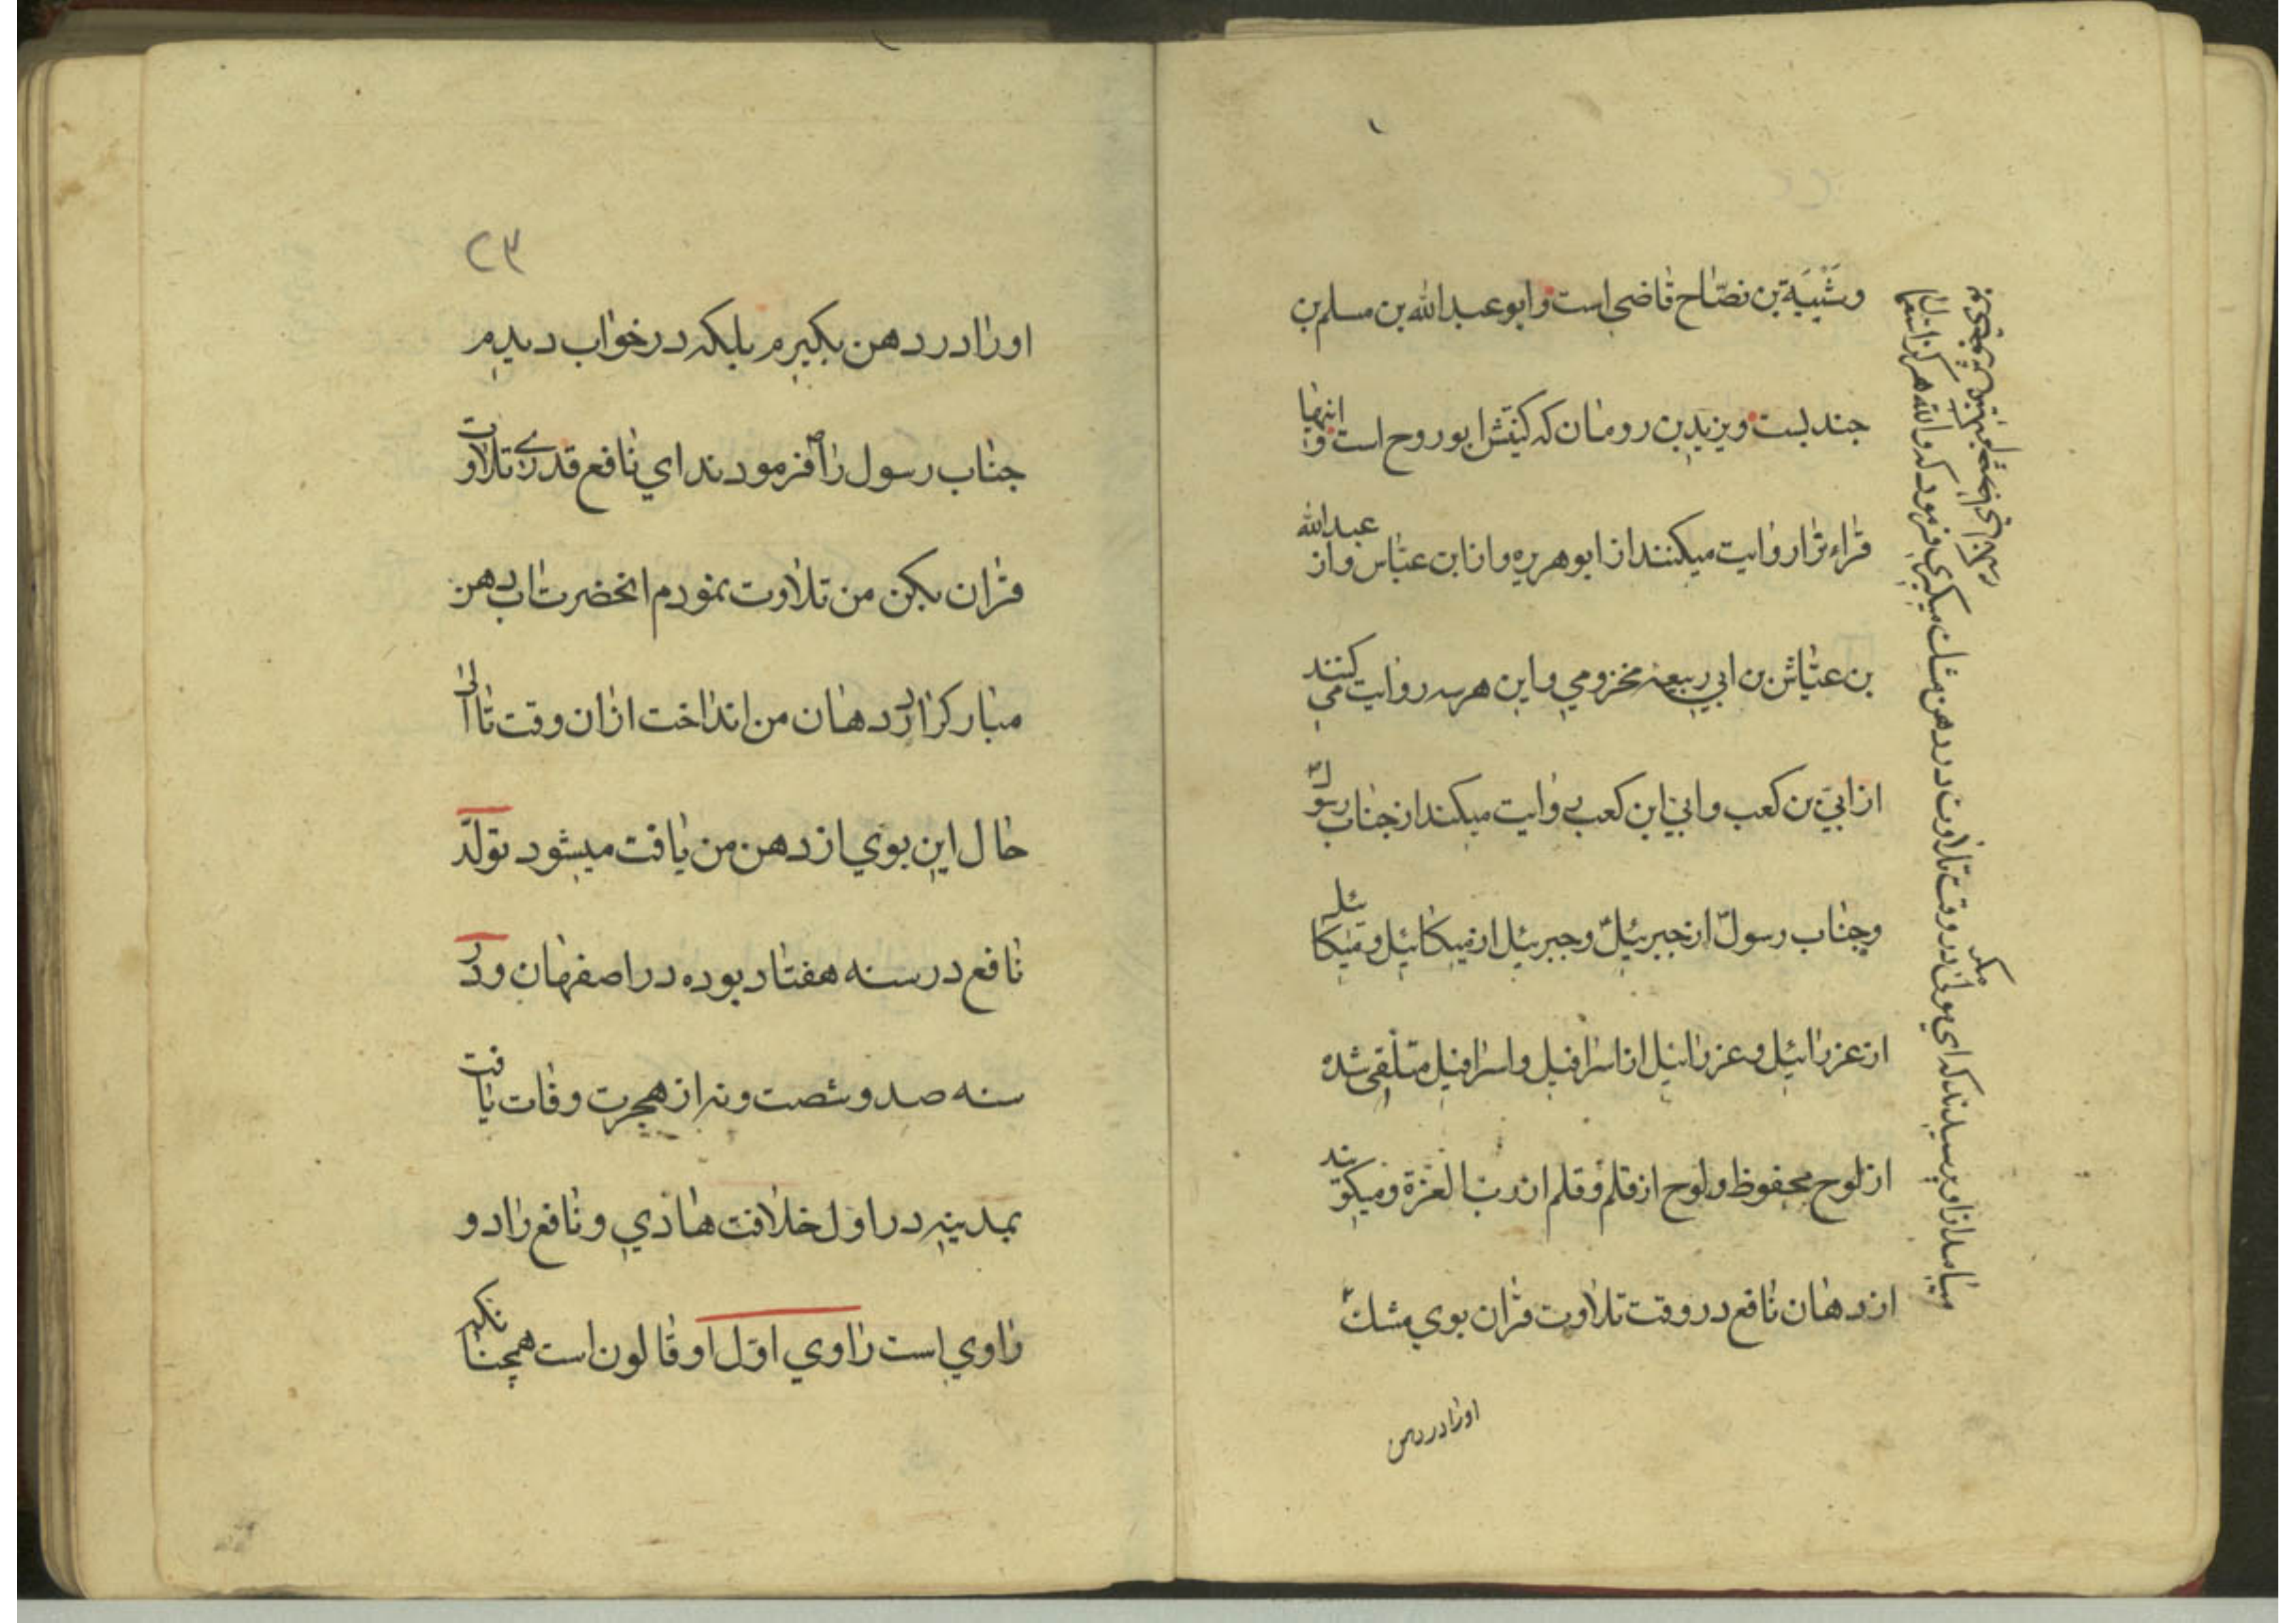 وشَيْبَة بن نصّاح قاضي است وابو عبد الله بن مسلم بن
جندبست ويزيد بن رومان كه كنيتش ابو روح است و اينها
قراء ثرا روايت ميكنند از ابو هريره و از ابن عبّاس و از عبد الله
بن عيّاش بن ابي ربيعه مخزومي و اين هر سه روايت مي كنند
از ابيّ بن كعب و ابيّ ابن كعب روايت ميكند از جناب رسول
وجناب رسول از جبرئيل وجبرئيل از ميكائيل و ميكائيل
از عزرائيل و عزرائيل از اسرافيل و اسرافيل متلقي شده
از لوح محفوظ و لوح از قلم و قلم از رب العزة و ميكويند
از دهان نافع در وقت تلاوت قران بوي مشك
ميامد از او پرسيدند كه اي مولى در وقت تلاوت در دهن مشك ميكيري فرمود كه والله هركز استعمال
اورا در دهن
٢٣
اورا در دهن بكيرم بلكه در خواب ديدم
جناب رسول را ص فرمودند اي نافع قدري تلاوت
قران بكن من تلاوت نمودم انحضرت اب دهن
مباركرا در دهان من انداخت ازان وقت تا الى
حال اين بوي از دهن من يافت ميشود تولّد
نافع در سنه هفتاد بوده در اصفهان و در
سنه صد و شصت و نه از هجرت وفات يافت
بمدينه در اول خلافت هادي و نافع را دو
راوي است راوي اوّل او قالون است همچنانكه